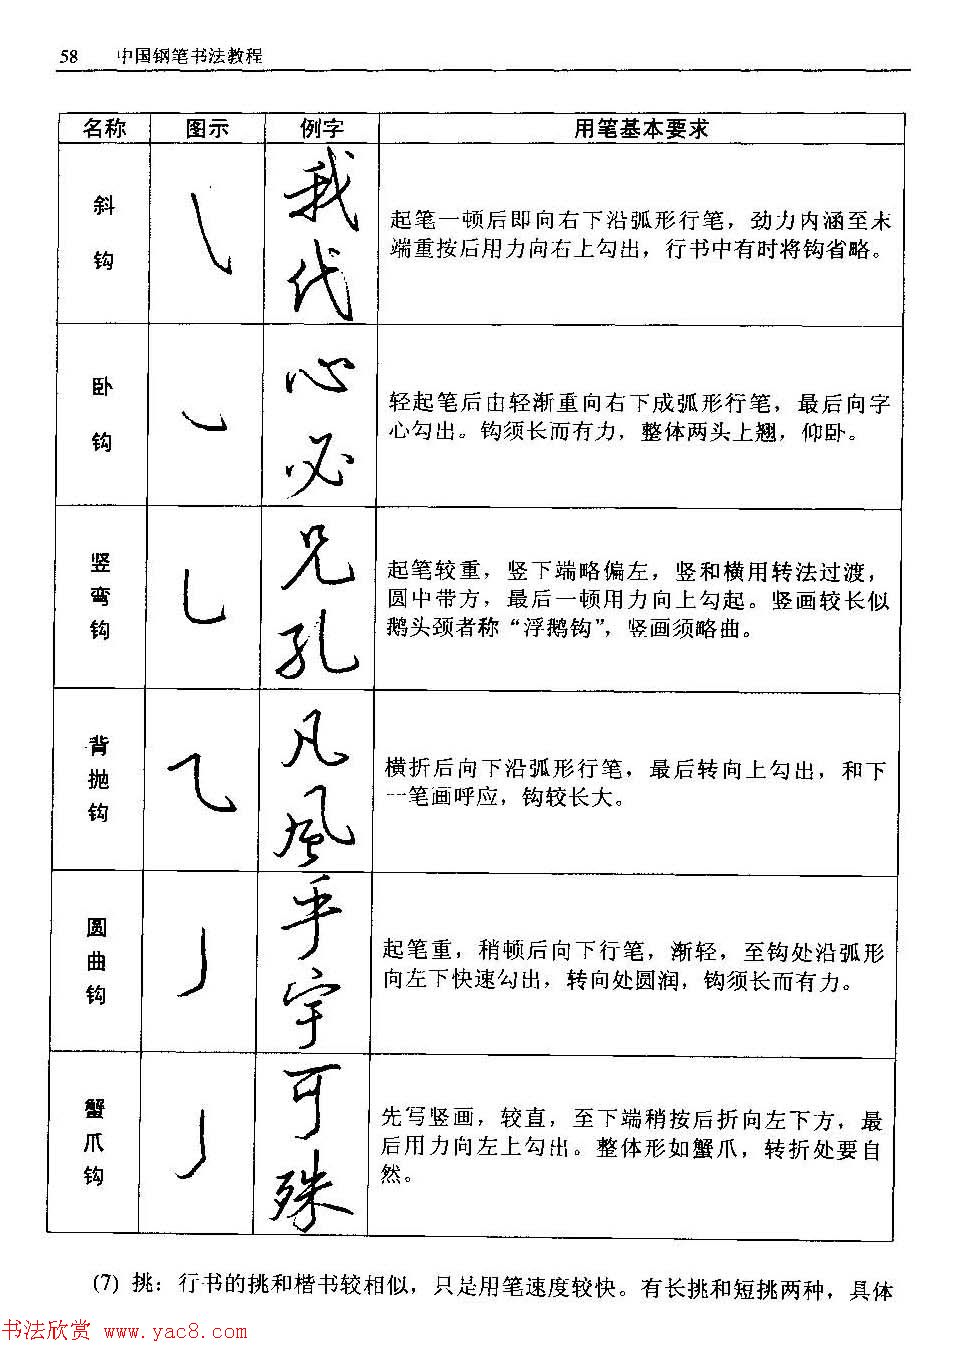 58 中国钢笔书法教程
名称 图示 例字 用笔基本要求
斜钩
我
代
起笔一顿后即向右下沿弧形行笔，劲力内涵至末
端重按后用力向右上勾出，行书中有时将钩省略。
卧钩
心
必
轻起笔后由轻渐重向右下成弧形行笔，最后向字
心勾出。钩须长而有力，整体两头上翘，仰卧。
竖弯钩
兄
孔
起笔较重，竖下端略偏左，竖和横用转法过渡，
圆中带方，最后一顿用力向上勾起。竖画较长似
鹅头颈者称“浮鹅钩”，竖画须略曲。
背抛钩
凡
風
横折后向下沿弧形行笔，最后转向上勾出，和下
一笔画呼应，钩较长大。
圆曲钩
乎
宇
起笔重，稍顿后向下行笔，渐轻，至钩处沿弧形
向左下快速勾出，转向处圆润，钩须长而有力。
蟹爪钩
可
殊
先写竖画，较直，至下端稍按后折向左下方，最
后用力向左上勾出。整体形如蟹爪，转折处要自
然。
(7) 挑：行书的挑和楷书较相似，只是用笔速度较快。有长挑和短挑两种，具体
书法欣赏 www.yac8.com